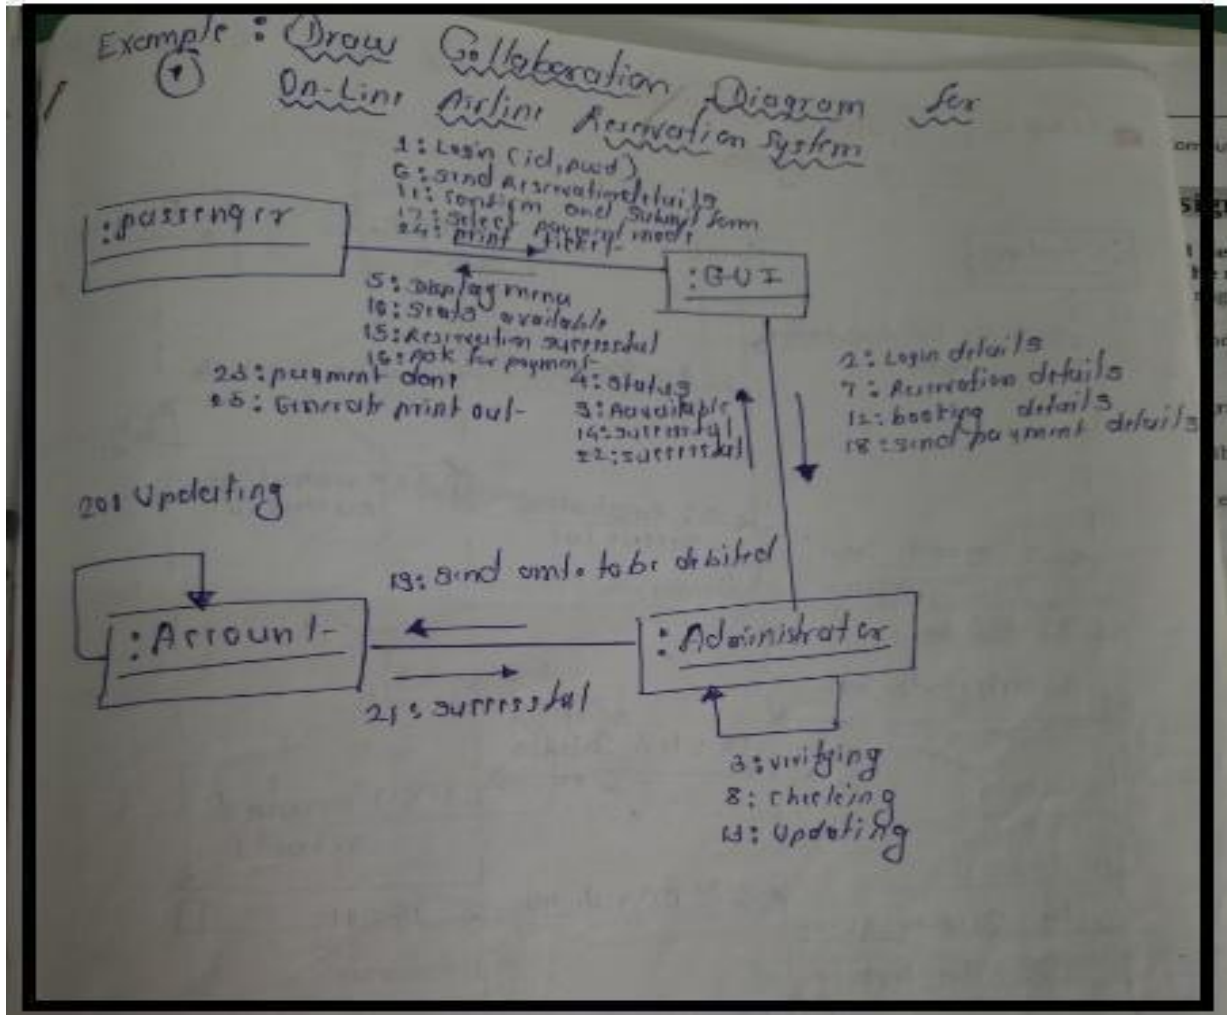 Example : Draw Collaboration Diagram for
1
On-Line Airline Reservation System
1: Login (id, pwd)
6: Send Reservation details
11: Confirm and Submit form
17: Select payment mode
24: print ticket
:passenger
:GUI
5: Display menu
10: Seats available
15: Reservation successful
16: Ask for payment
23: payment done
25: Generate print out
4: Status
9: Aavailable
14: successful
22: successful
2: Login details
7: Reservation details
12: booking details
18: send payment details
20: Updating
19: Send amt. to be debited
:Account
:Administrator
21: successful
3: verifying
8: checking
13: Updating